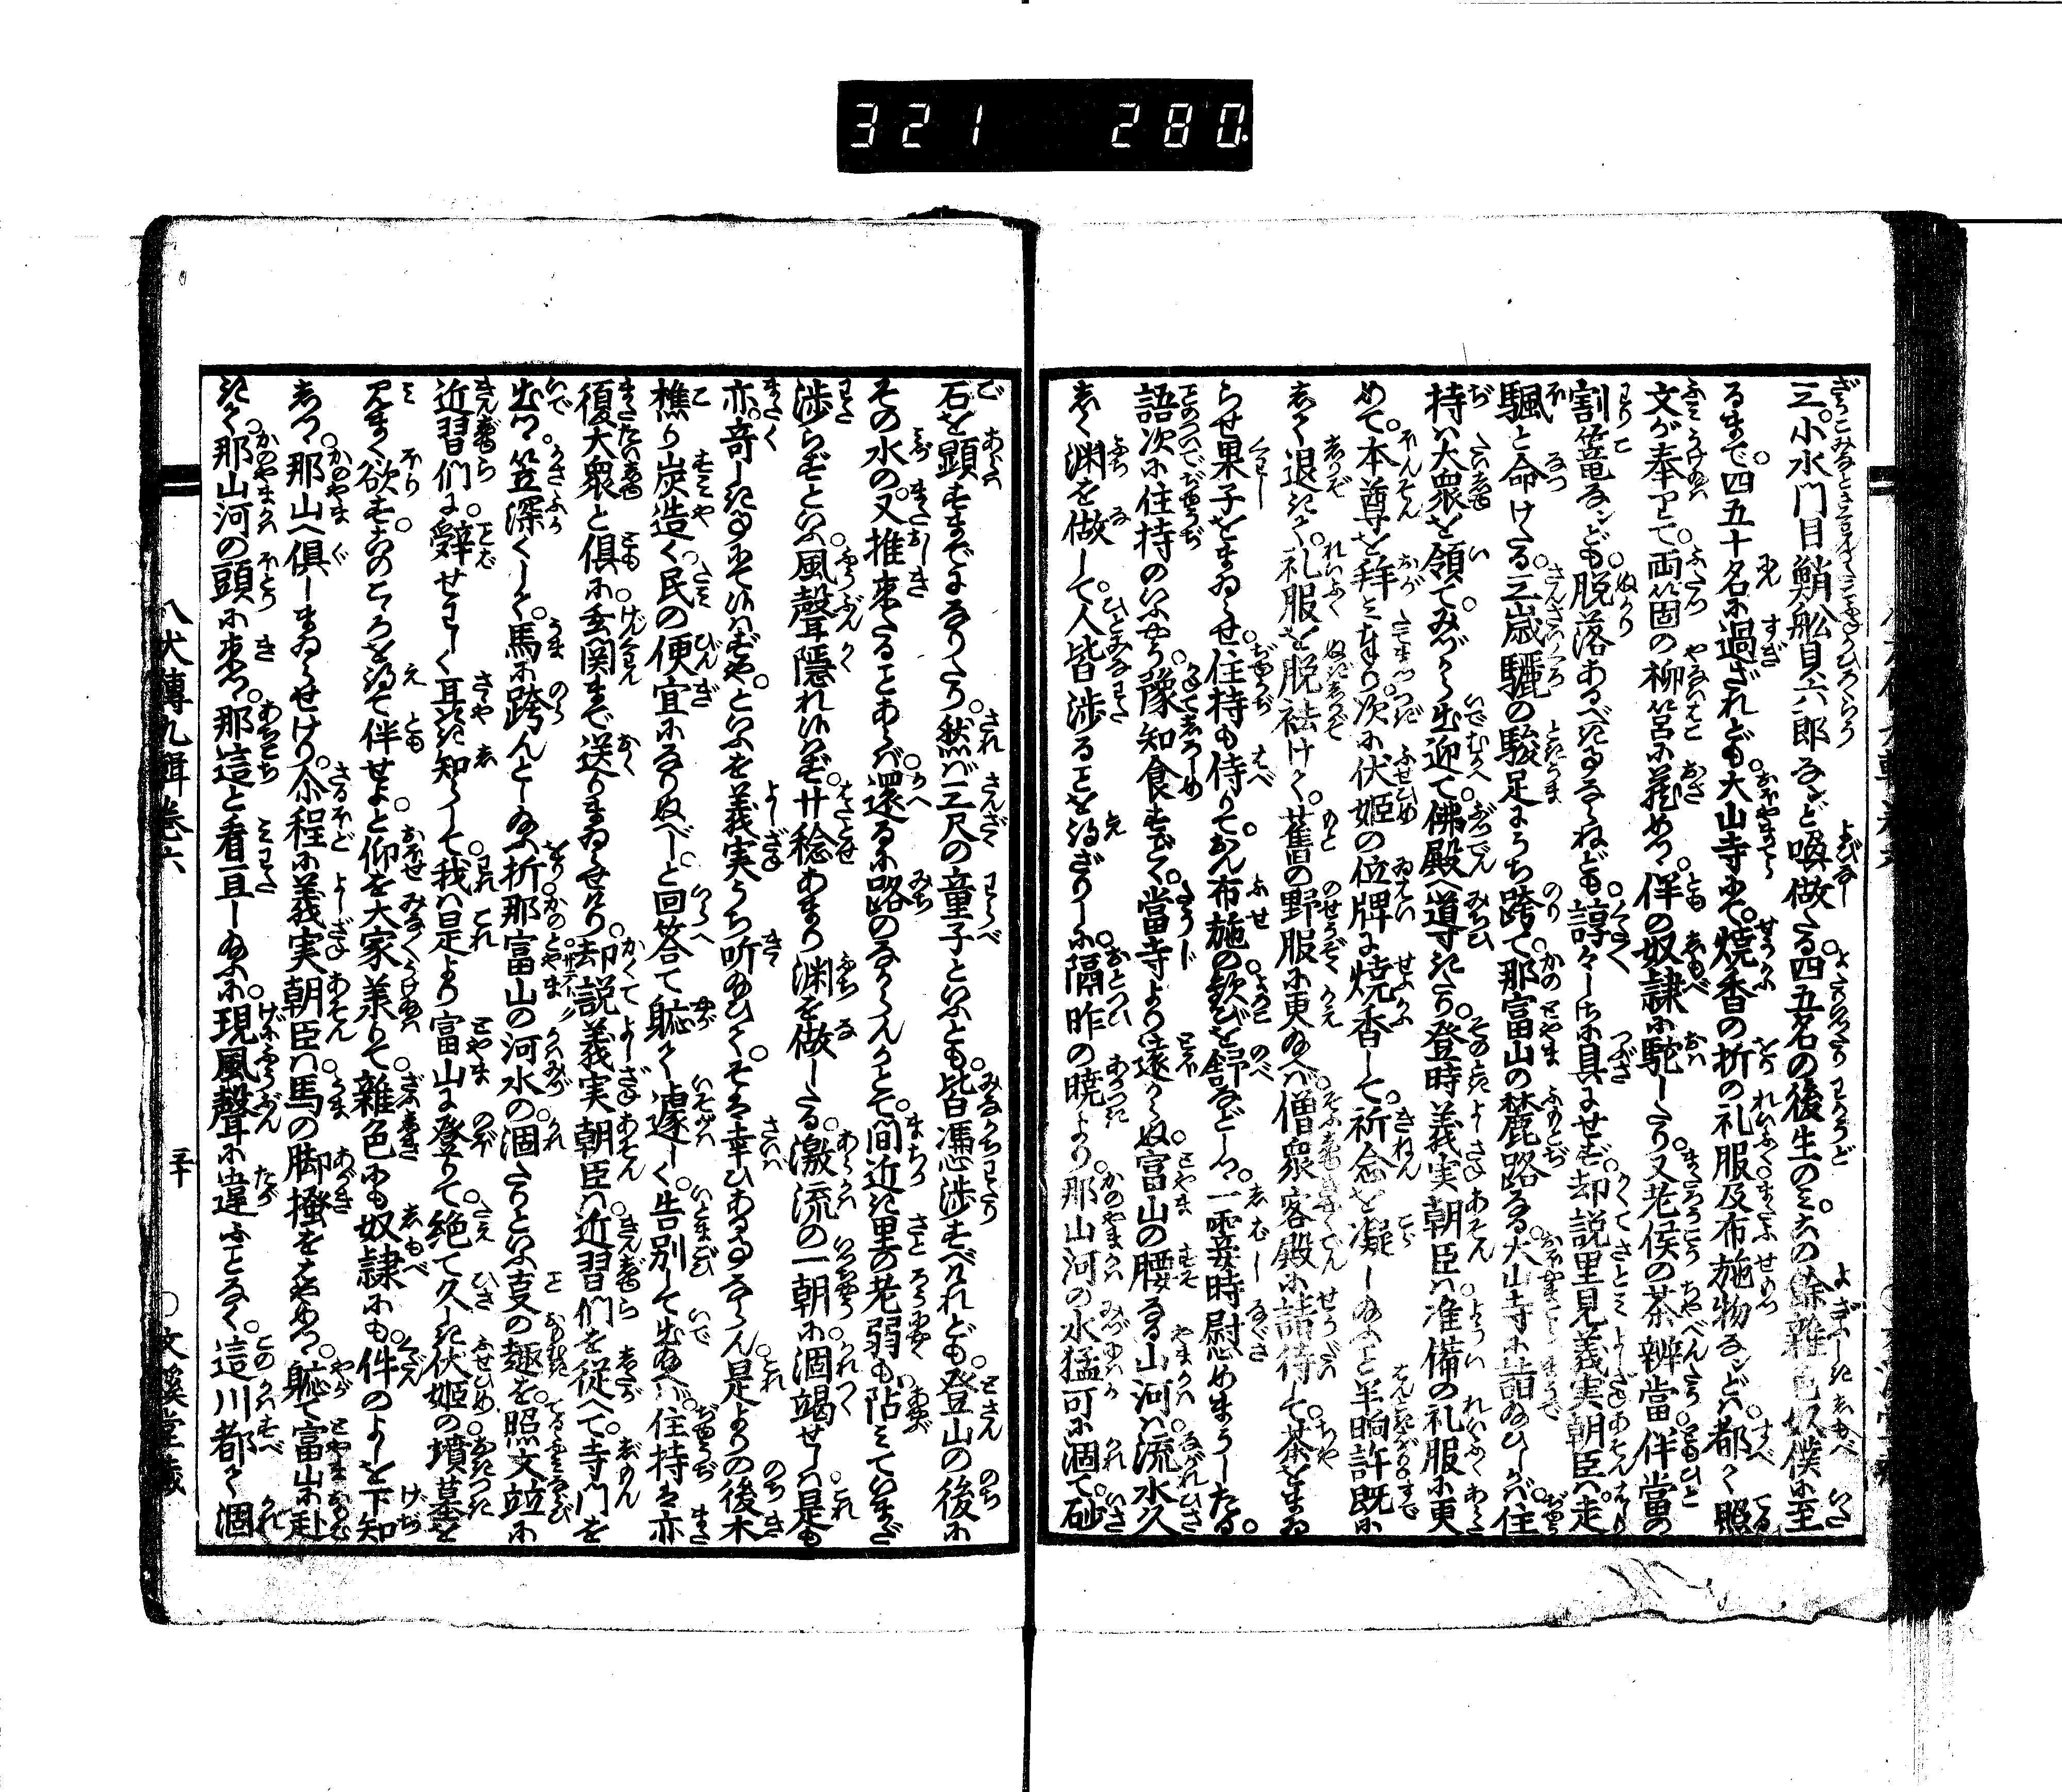 321 280
三。小水門目鯘舩貝六郎なンど喚做たる。四五名の後生のミ。その餘雜色奴僕に至
るまで。四五十名に過ざれども。大山寺にて。焼香の折の礼服及布施物なンどハ。都て照
文が奉りて。両箇の柳筥に蔵めつ。伴の奴隷に駝したり。又老侯の茶辨當。伴當の
割篭なンども。脱落あるべき事ならねども。諄々しけれバ具にせず。却説里見義実朝臣ハ。走
颿と命けたる。三歳驪の駿足にうち跨て。那富山の麓路なる。大山寺に詣給ひしかバ。住
持ハ大衆を領て。みづから出迎て。佛殿へ導きたり。登時義実朝臣ハ。准備の礼服に更
めて。本尊を拜ミまつり。次に伏姫の位牌に焼香して。祈念を凝し給ふこと半晌許。既に
して退きて。礼服を脱袪けて。舊の野服に更給へバ。僧衆客殿に請待して。茶をまゐ
らせ果子をまゐらせ。住持も侍りて。おん布施の歓びを舒などしつ。一霎時慰めまうしたる。
語次に住持のいふやう。豫知食すごとく。當寺より遠からぬ。富山の腰なる山河ハ。流水久
しく渊を做して。人皆渉ることを得ざりしに。隔昨の暁より。那山河の水猛可に涸て。砂
石を顕すまでになりたり。然バ三尺の童子といふとも。皆馮渉すべけれども。登山の後に
その水の。又推来ることあらバ。還るに路のなからんかとて。間近き里の老弱も。阽ミていまだ
渉らずといふ。風聲隠れ候ハず。廿稔あまり渊を做したる。激流の一朝に涸竭せしハ。是も
亦。奇しき事にて候ハずや。といふを義実うち听給ひて。そは幸ひある事ならん。是よりの後木
樵り炭造く。民の便宜になりぬべし。と回答て躮て遽しく。告別して出給へバ。住持は亦
復大衆と倶に玄関まで送りまゐらせけり。却説義実朝臣ハ。近習們を従へて。寺門を
出つ。笠深くして。馬に跨んとし給ふ折。那富山の河水の。涸たりといふ㕝の趣を。照文竝に
近習們に。辭せわしく耳き知らして。我ハ是より富山に登りて。絶て久しき伏姫の。墳墓を
見まく欲す。そのこゝろを得て伴せよ。と仰を大家承りて。雜色にも奴隷にも。件のよしを下知
しつ。那山へ倶しまゐらせけり。尒程に義実朝臣ハ。馬の脚掻をはやめつ。躮て富山に赴
きて。那山河の頭に来つ。那這と看亘し給ふに。現風聲に違ふことなく。這川都て涸
八犬傳九輯卷六
三十
○文溪堂藏